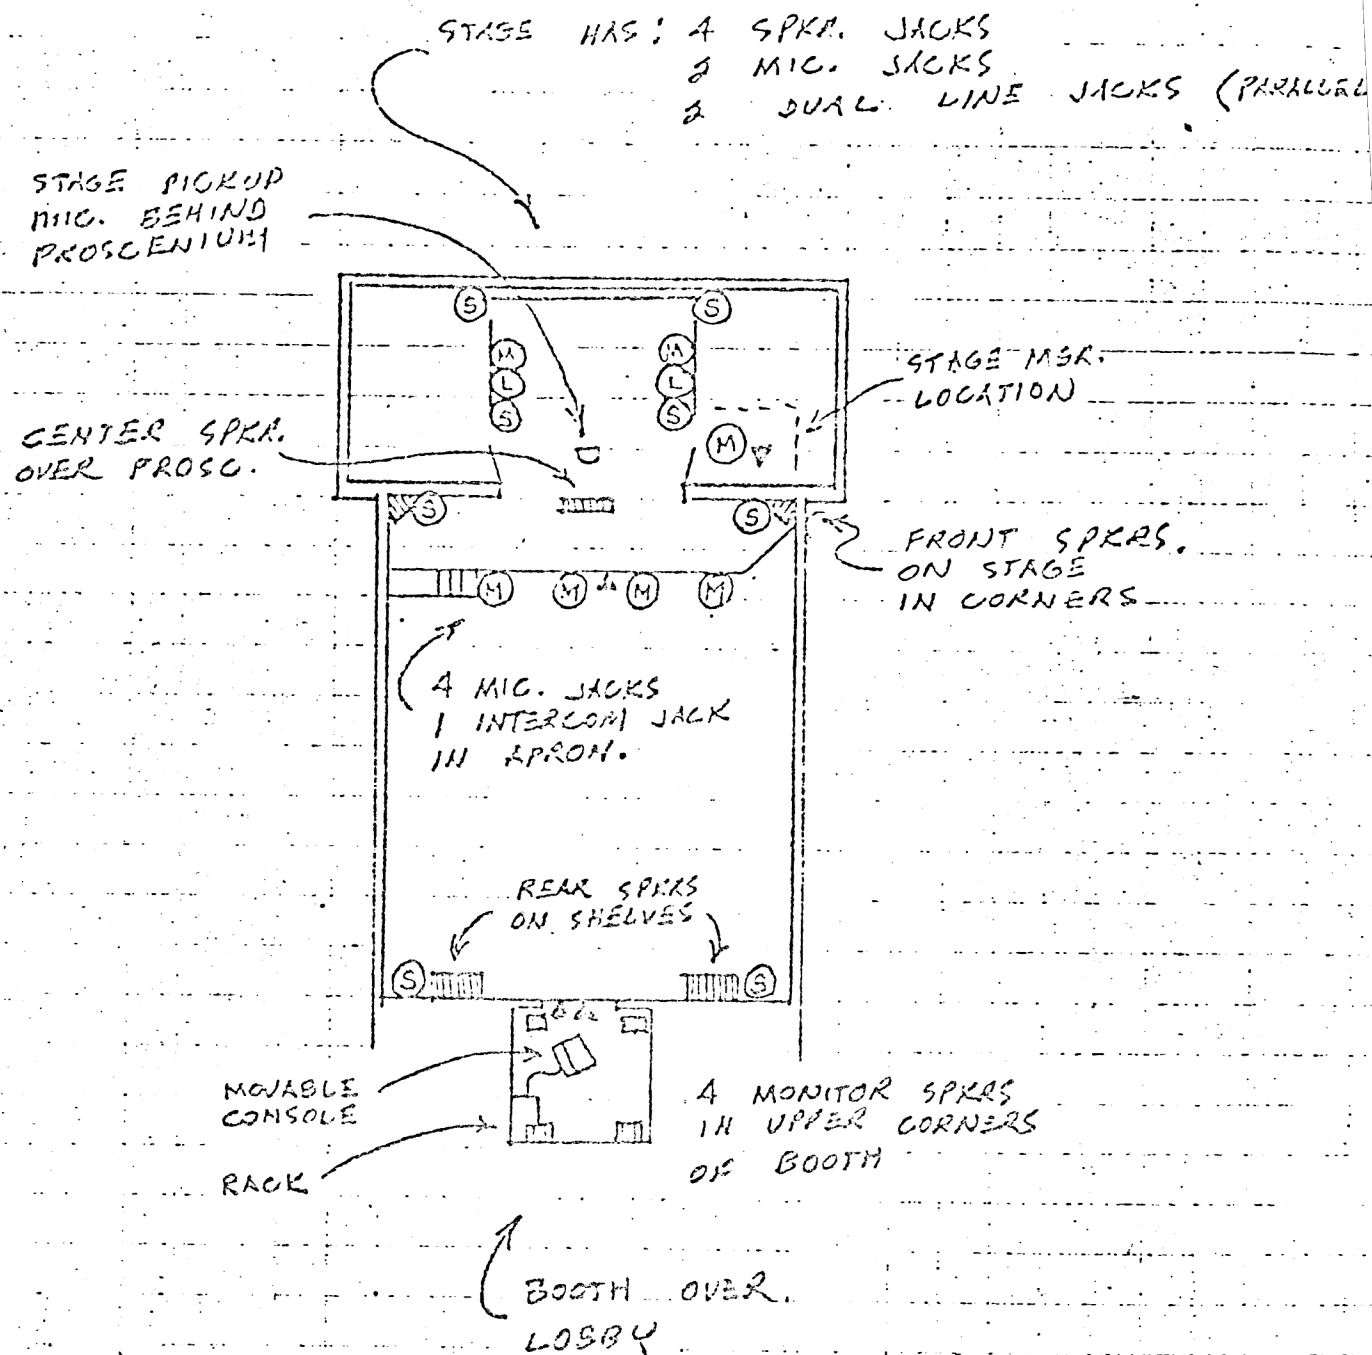 STAGE HAS: 4 SPKR. JACKS
2 MIC. JACKS
2 DUAL LINE JACKS (PARALLEL
STAGE PICKUP
MIC. BEHIND
PROSCENIUM
S
S
M
M
L
L
S
S
STAGE MGR.
LOCATION
M
CENTER SPKR.
OVER PROSC.
S
S
FRONT SPKRS.
ON STAGE
IN CORNERS
M
M
M
M
4 MIC. JACKS
1 INTERCOM JACK
IN APRON.
REAR SPKRS
ON SHELVES
S
S
MOVABLE
CONSOLE
RACK
4 MONITOR SPKRS
IN UPPER CORNERS
OF BOOTH
BOOTH OVER.
LOBBY